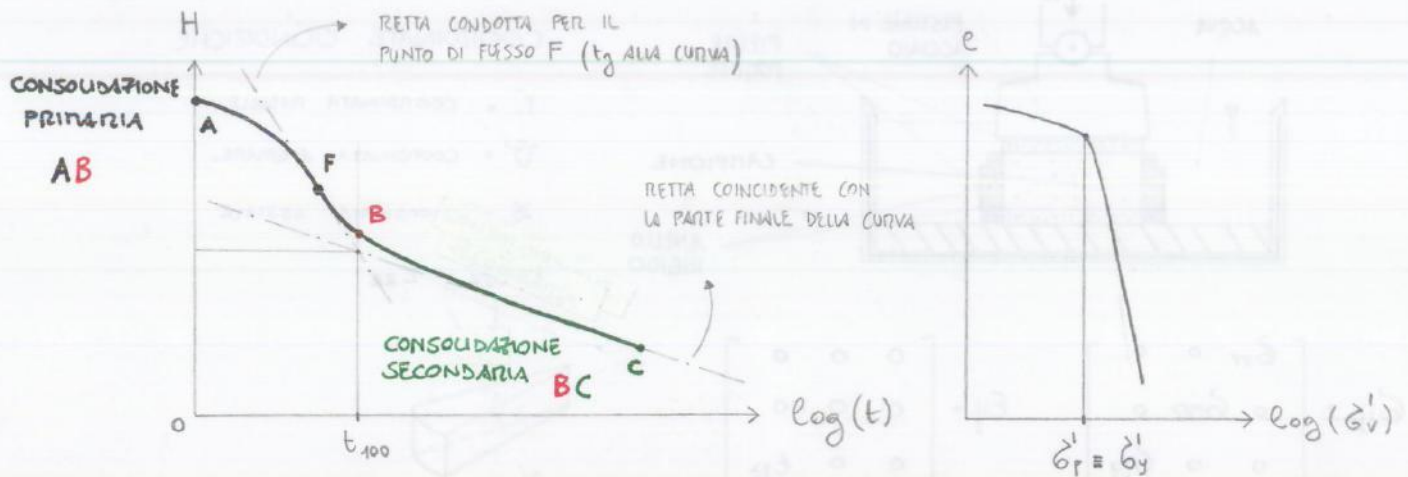 H
RETTA CONDOTTA PER IL
PUNTO DI FLESSO F (tg ALLA CURVA)
CONSOLIDAZIONE
PRIMARIA
AB
A
F
B
RETTA COINCIDENTE CON
LA PARTE FINALE DELLA CURVA
CONSOLIDAZIONE
SECONDARIA BC
C
0
t100
log(t)
e
log(σ'v)
σ'p ≡ σ'y